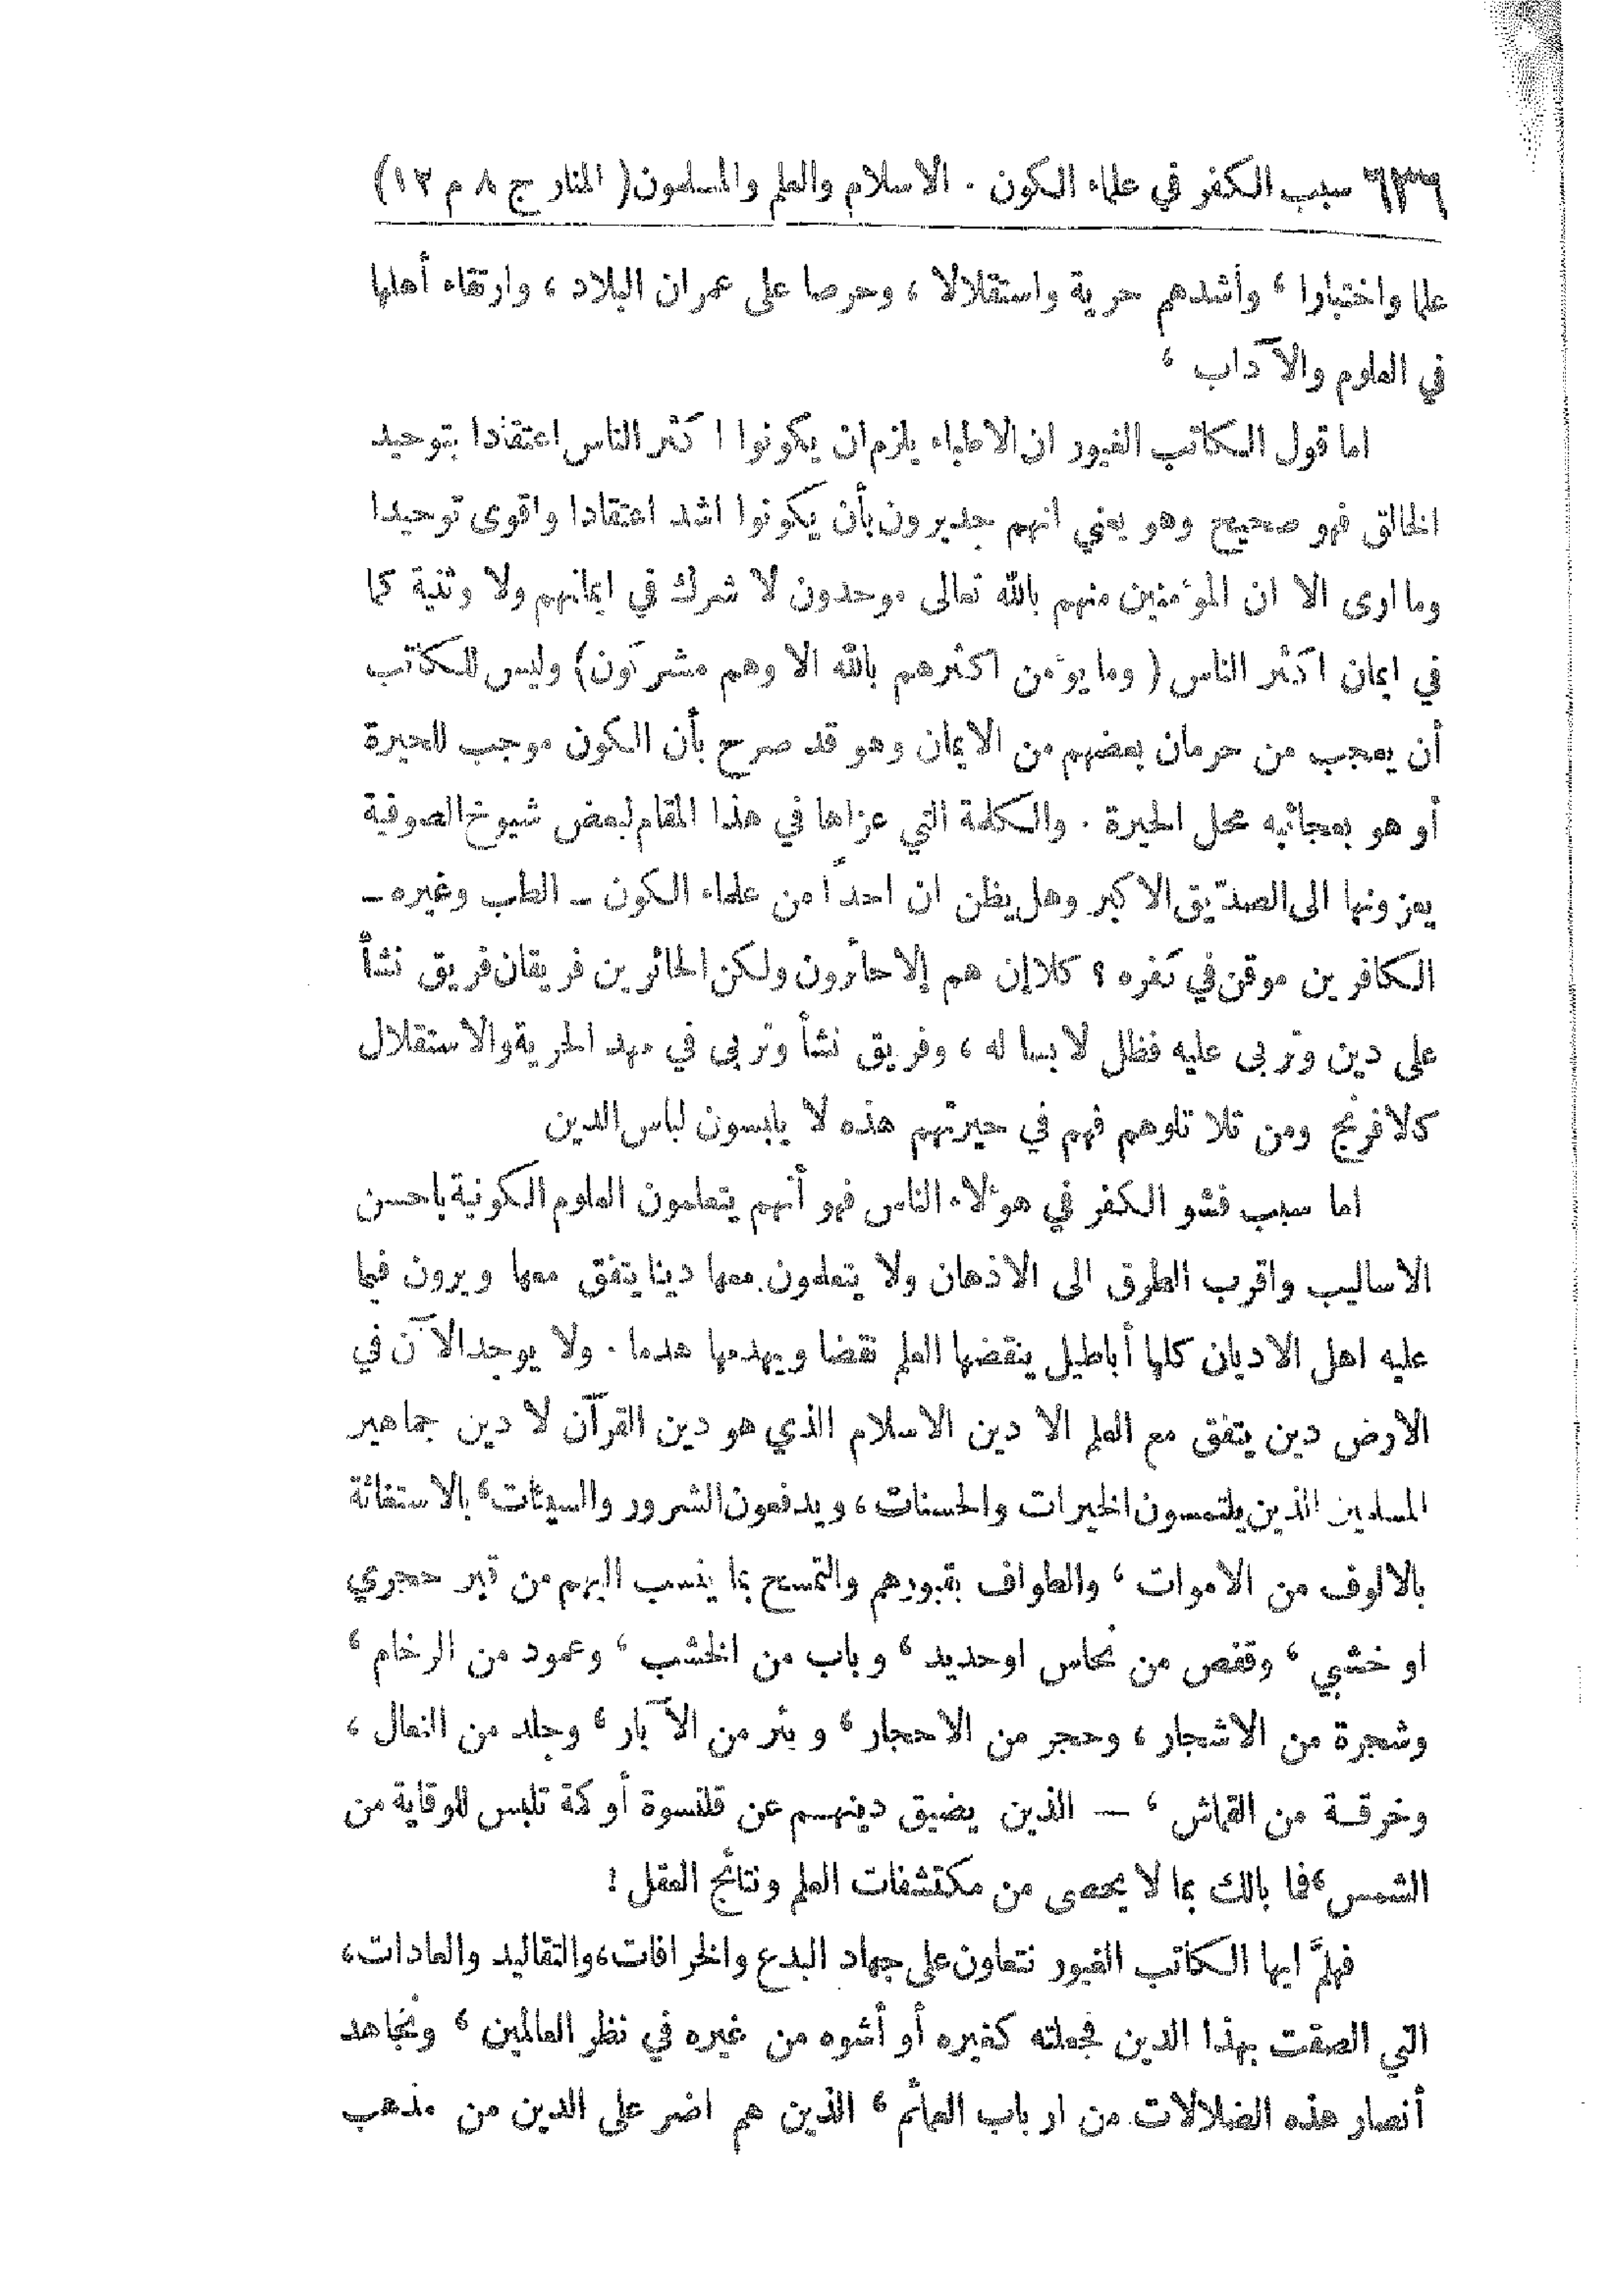 ٦٣٦ سبب الكفر في علماء الكون . الاسلام والعلم والمسلمون ( المنار ج ٨ م ١٣ )
علما واختبارا ، وأشدهم حرية واستقلالا ، وحرصا على عمران البلاد ، وارتقاء أهلها
في العلوم والآداب ،
اما قول الكاتب الغيور ان الاطباء يلزم ان يكونوا اكثر الناس اعتقادا بتوحيد
الخالق فهو صحيح وهو يعني انهم جديرون بأن يكونوا اشد اعتقادا واقوى توحيدا
وما ارى الا ان المؤمنين منهم بالله تعالى موحدون لا شرك في ايمانهم ولا وثنية كما
في ايمان اكثر الناس ( وما يؤمن اكثرهم بالله الا وهم مشركون) وليس للكاتب
أن يعجب من حرمان بعضهم من الايمان وهو قد صرح بأن الكون موجب للحيرة
أو هو بعجائبه محل الحيرة . والكلمة التي عزاها في هذا المقام لبعض شيوخ الصوفية
يعزونها الى الصدّيق الاكبر وهل يظن ان احداً من علماء الكون ـ الطب وغيره ـ
الكافرين موقن في كفره ؟ كلا إن هم إلا حائرون ولكن الحائرين فريقان فريق نشأ
على دين وتربى عليه فظل لابسا له ، وفريق نشأ وتربى في مهد الحرية والاستقلال
كالافرنج ومن تلا تلوهم فهم في حيرتهم هذه لا يلبسون لباس الدين
اما سبب فشو الكفر في هؤلاء الناس فهو أنهم يتعلمون العلوم الكونية باحسن
الاساليب واقرب الطرق الى الاذهان ولا يتعلمون معها دينا يتفق معها ويرون فيما
عليه اهل الاديان كلها أباطيل ينقضها العلم نقضا ويهدمها هدما . ولا يوجد الآن في
الارض دين يتفق مع العلم الا دين الاسلام الذي هو دين القرآن لا دين جماهير
المسلمين الذين يلتمسون الخيرات والحسنات ، ويدفعون الشرور والسيئات ، بالاستغاثة
بالالوف من الاموات ، والطواف بقبورهم والتمسح بما ينسب اليهم من قبر حجري
او خشبي ، وقفص من نحاس اوحديد ، وباب من الخشب ، وعمود من الرخام ،
وشجرة من الاشجار ، وحجر من الاحجار ، وبئر من الآبار ، وجلد من النعال ،
وخرقة من القماش ، — الذين يضيق دينهم عن قلنسوة أو كمة تلبس للوقاية من
الشمس ، فما بالك بما لا يحصى من مكتشفات العلم ونتائج العقل !
فهلمَّ ايها الكاتب الغيور نتعاون على جهاد البدع والخرافات ، والتقاليد والعادات ،
التي الصقت بهذا الدين فجعلته كغيره أو أشوه من غيره في نظر العالمين ، ونجاهد
أنصار هذه الضلالات من ارباب العمائم ، الذين هم اضر على الدين من مذهب